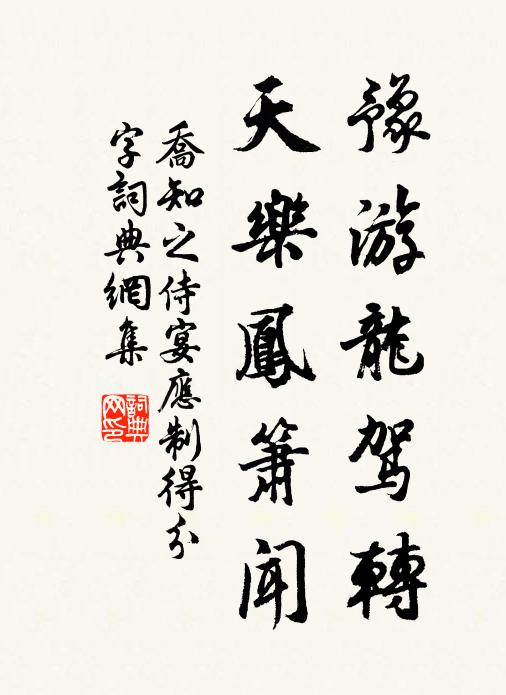 豫游龍駕轉
天樂鳳簫聞
喬知之侍宴應制得分
字詞典網集
詞典网印